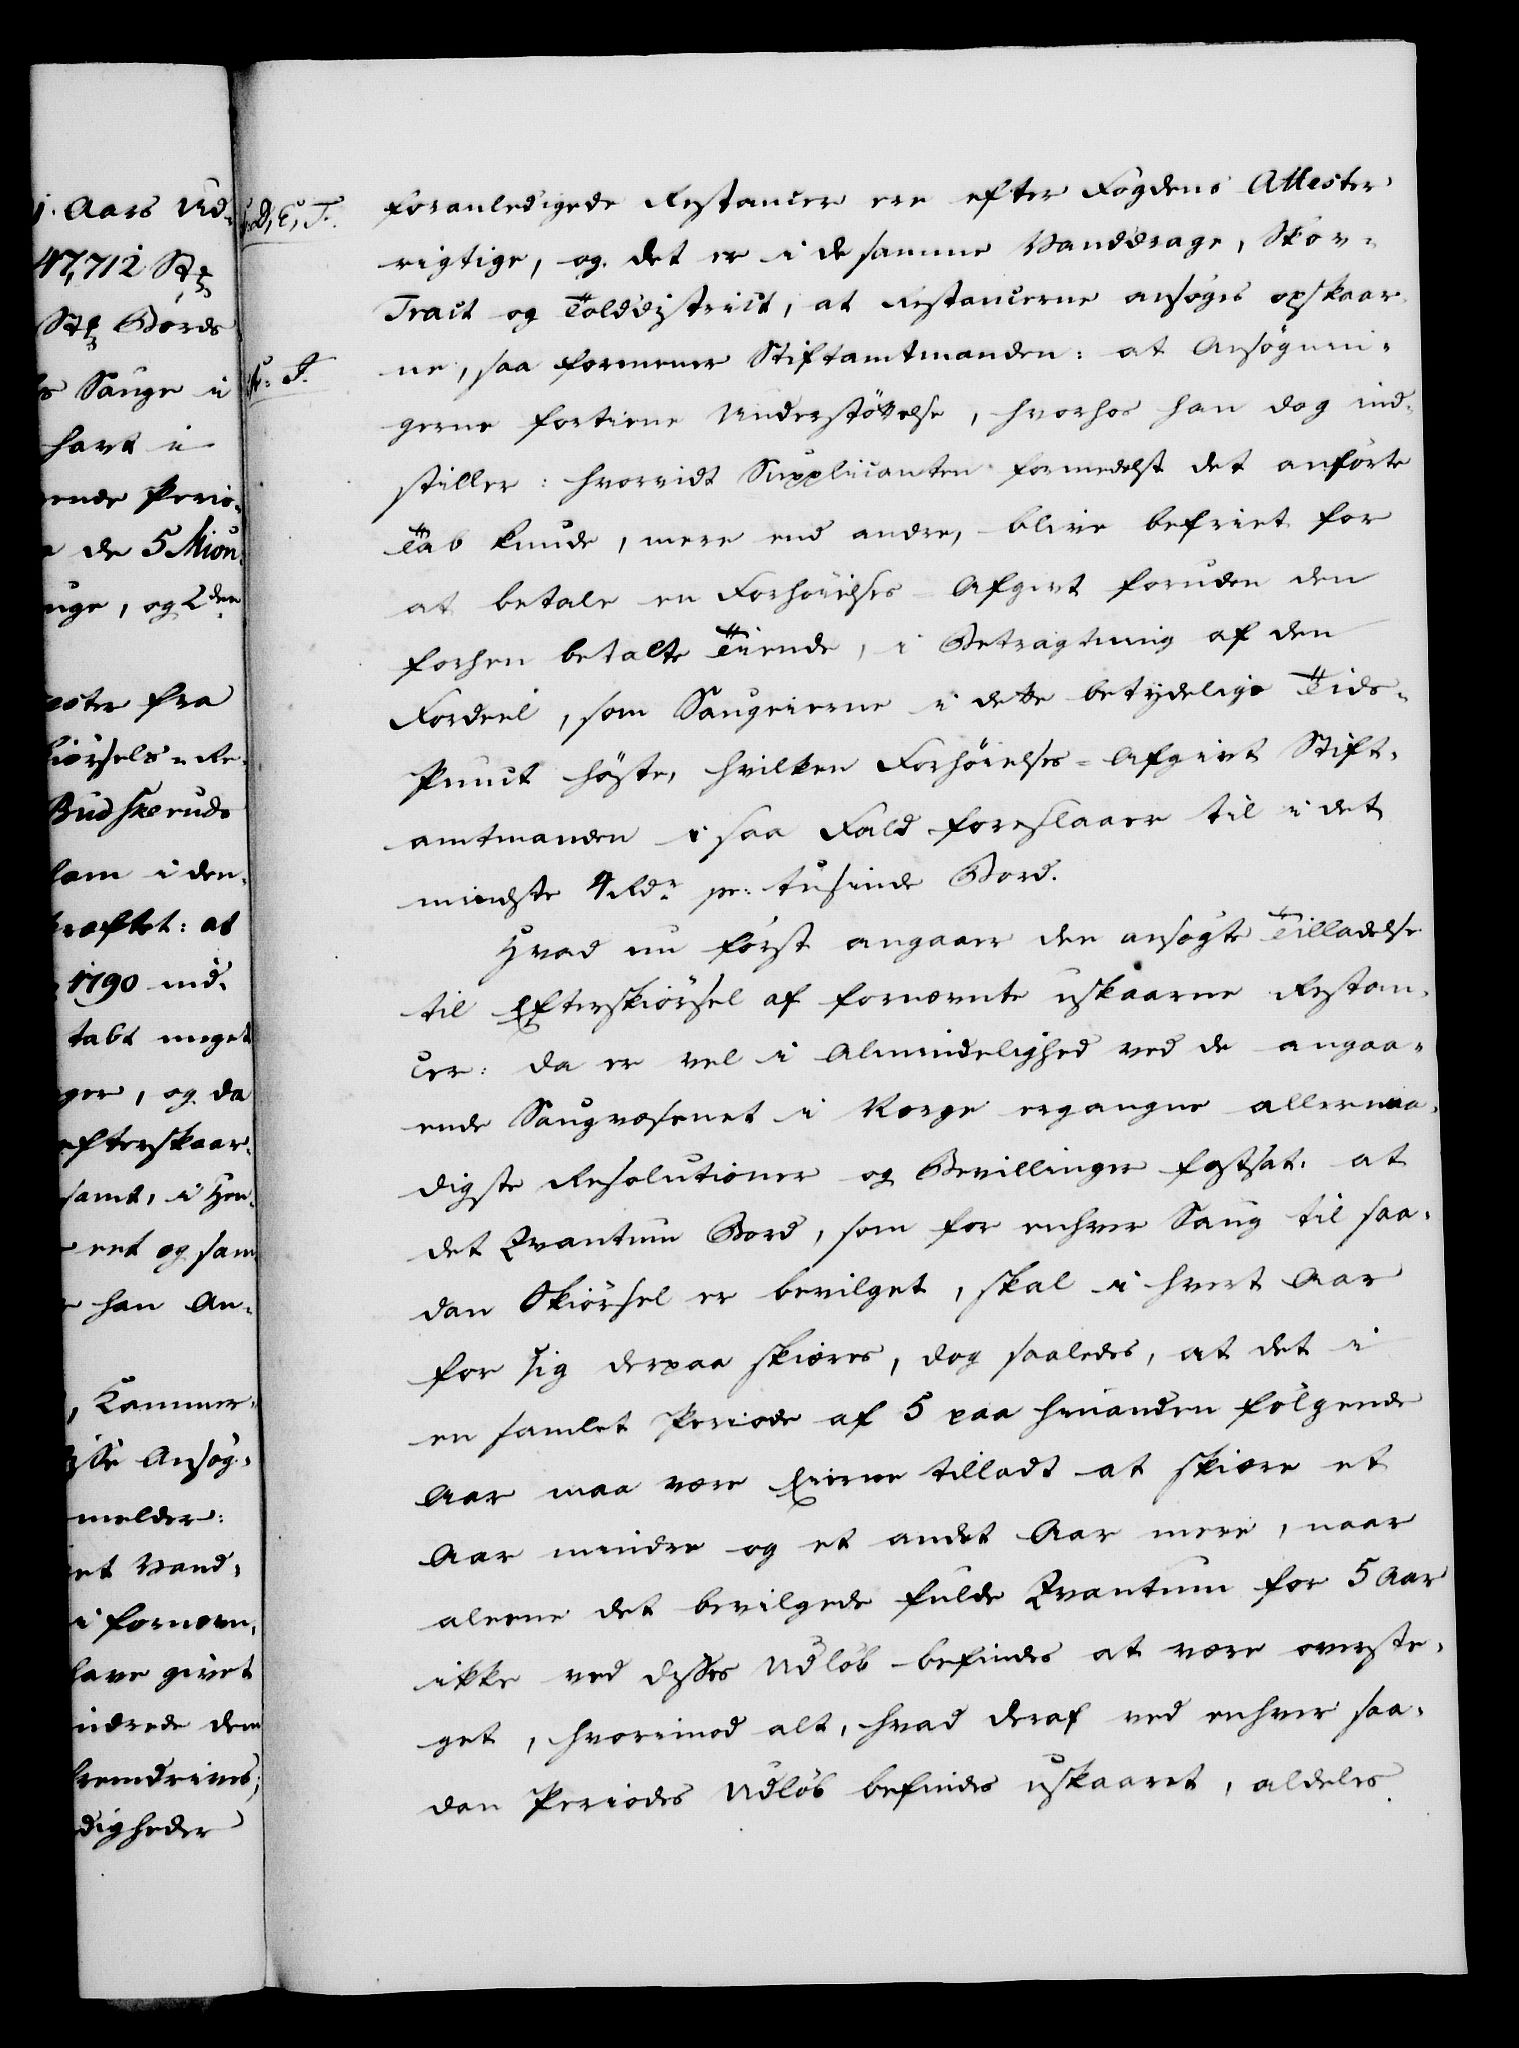 j. Aars Ud-
47,712 Stz
Stz Bords
Sauge i
havt i
ende Perio-
de 5 Mion
uge, og 2den
ester fra
kiørsels-Re-
Budskeruds
lam i den-
kræftet: at
1790 ind-
tabt meget
ger, og da
efterskaar-
samt, i Hen-
eet og sam
han An-
, Kammer-
isse Ansøg-
melder:
et Vand-
i fornævn-
have givet
indrede dem
fremdrives,
digheder
D, E, F.
foranledigede Restancer ere efter Fogdens Attester
rigtige, og det er i de samme Vanddrage, Skov-
Tract og Tolddistrict, at Restancerne ansøges opskaar-
F.
ne, saa formener Stiftamtmanden: at Ansøgnin-
gerne fortiene Understøttelse, hvorhos han dog ind-
stiller: hvorvidt Supplicanten formedelst det anførte
Tab kunde, mere end andre, blive befriet for
at betale en Forhøielses-Afgivt foruden den
forhen betalte Tiende, i Betragtning af den
Fordeel, som Saugeierne i dette betydelige Tids-
Punct høste, hvilken Forhøielses-Afgivt Stift-
amtmanden i saa Fald foreslaaer til i det
mindste 4 Rdr pr: tusinde Bord.
Hvad nu først angaaer den ansøgte Tilladelse
til Efterskiørsel af fornævnte uskaarne Restan-
cer: da er vel i Almindelighed ved de angaa-
ende Saugvæsenet i Norge ergangne allernaa-
digste Resolutioner og Bevillinger fastsat, at
det Qvantum Bord, som for enhver Saug til saa-
dan Skiørsel er bevilget, skal i hvert Aar
for sig derpaa skiæres, dog saaledes, at det i
en samlet Periode af 5 paa hinanden følgende
Aar maa være Eierne tilladt at skiære et
Aar mindre og et andet Aar mere, naar
aleene det bevilgede fulde Qvantum for 5 Aar
ikke ved disses Udløb befindes at være overste-
get, hvorimod alt, hvad deraf ved enhver saa-
dan Periodes Udløb befindes uskaaret, aldeles